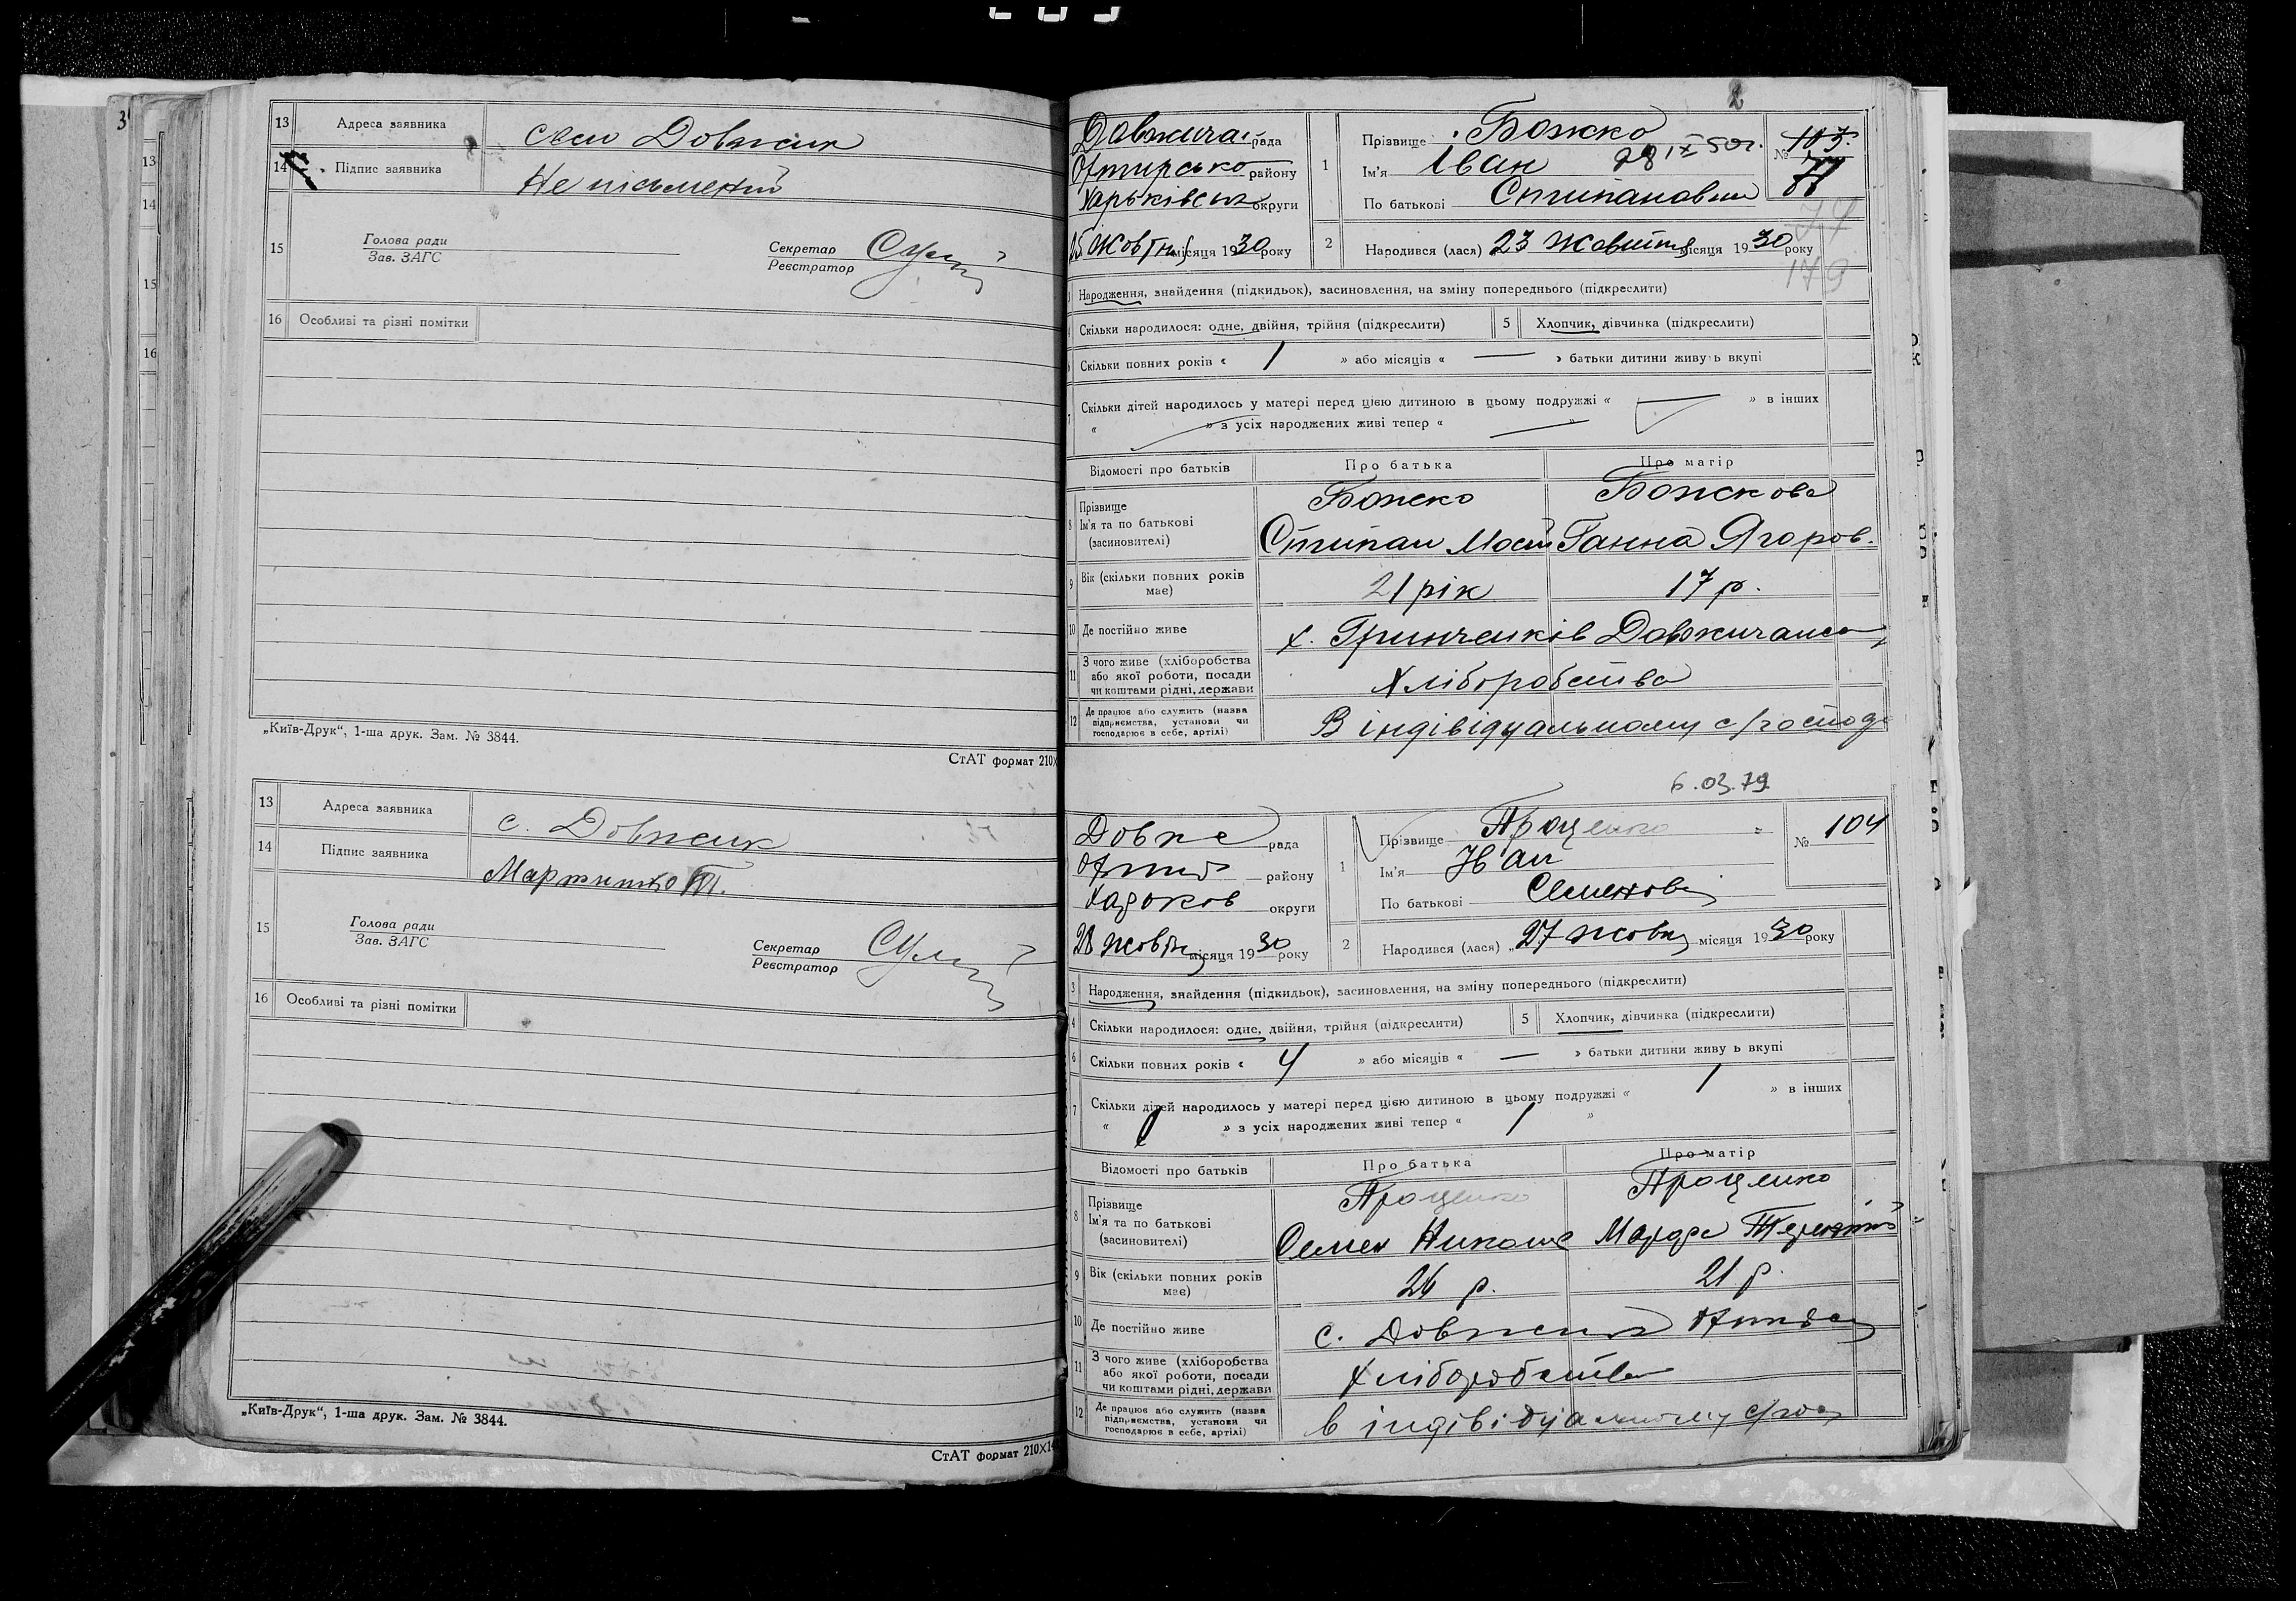 13 Адреса заявника село Довжик
14 Підпис заявника Не письмений
15 Голова ради
Зав. ЗАГС
Секретар
Реєстратор
16 Особливі та різні помітки
„Київ-Друк“, 1-ша друк. Зам. № 3844.
СтАТ формат 210×
13 Адреса заявника с. Довжик
14 Підпис заявника
15 Голова ради
Зав. ЗАГС
Секретар
Реєстратор
16 Особливі та різні помітки
„Київ-Друк“, 1-ша друк. Зам. № 3844.
СтАТ формат 210×14
2
рада
району
округи
25 Жовтня місяця 1930 року
1 Прізвище Божко
Ім'я Іван 28 IX 50г.
По батькові Стипанович
№ 103.
77
179
2 Народився (лася) 23 Жовтня місяця 1930 року
3 Народження, знайдення (підкидьок), засиновлення, на зміну попереднього (підкреслити)
4 Скільки народилося: одне, двійня, трійня (підкреслити) 5 Хлопчик, дівчинка (підкреслити)
6 Скільки повних років « 1 » або місяців « — » батьки дитини живуть вкупі
7 Скільки дітей народилось у матері перед цією дитиною в цьому подружжі « — » в інших
« — » з усіх народжених живі тепер « — »
Відомості про батьків Про батька Про матір
8 Прізвище Божко Божкова
Ім'я та по батькові Стипан Ганна Ягоров.
(засиновителі)
9 Вік (скільки повних років має) 21 рік 17 р.
10 Де постійно живе х. Гринченків
11 З чого живе (хліборобства
або якої роботи, посади
чи коштами рідні, держави Хліборобства
12 Де працює або служить (назва
підприємства, установи чи
господарює в себе, артілі) В індівідуальному с/господ
6.03.79
рада
району
округи
28 жовтн місяця 1930 року
1 Прізвище Проценко
Ім'я Іван
По батькові Семенович
№ 104
2 Народився (лася) 27 жовтн місяця 1930 року
3 Народження, знайдення (підкидьок), засиновлення, на зміну попереднього (підкреслити)
4 Скільки народилося: одне, двійня, трійня (підкреслити) 5 Хлопчик, дівчинка (підкреслити)
6 Скільки повних років « 4 » або місяців « — » батьки дитини живу ь вкупі
7 Скільки дітей народилось у матері перед цією дитиною в цьому подружжі « 1 » в інших
« » з усіх народжених живі тепер « 1 »
Відомості про батьків Про батька Про матір
8 Прізвище Проценко Проценко
Ім'я та по батькові Семен Марфа
(засиновителі)
9 Вік (скільки повних років має) 26 р. 21 р.
10 Де постійно живе с. Довжик
11 З чого живе (хліборобства
або якої роботи, посади
чи коштами рідні, держави Хліборобства
12 Де працює або служить (назва
підприємства, установи чи
господарює в себе, артілі) в індівідуальному с/гос